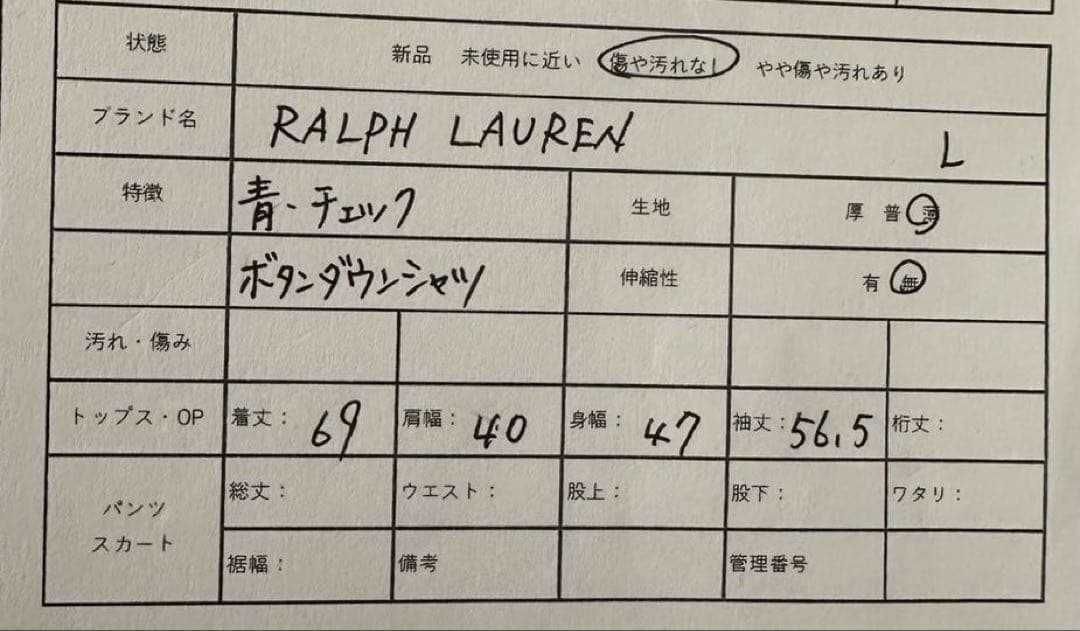 状態 新品 未使用に近い 傷や汚れなし やや傷や汚れあり
ブランド名 RALPH LAUREN L
特徴 青・チェック 生地 厚 普 薄
ボタンダウンシャツ 伸縮性 有 無
汚れ・傷み
トップス・OP 着丈： 69 肩幅： 40 身幅： 47 袖丈： 56.5 裄丈：
パンツ 総丈： ウエスト： 股上： 股下： ワタリ：
スカート 裾幅： 備考 管理番号